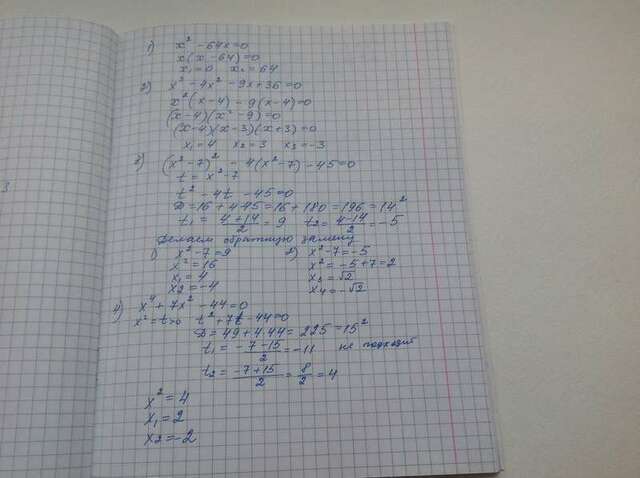 1) x² - 64x = 0
x(x - 64) = 0
x₁ = 0 x₂ = 64
2) x³ - 4x² - 9x + 36 = 0
x²(x - 4) - 9(x - 4) = 0
(x - 4)(x² - 9) = 0
(x - 4)(x - 3)(x + 3) = 0
x₁ = 4 x₂ = 3 x₃ = -3
3) (x² - 7)² - 4(x² - 7) - 45 = 0
t = x² - 7
t² - 4t - 45 = 0
D = 16 + 4·45 = 16 + 180 = 196 = 14²
t₁ = (4 + 14)/2 = 9 t₂ = (4 - 14)/2 = -5
Делаем обратную замену
1) x² - 7 = 9 2) x² - 7 = -5
x² = 16 x² = -5 + 7 = 2
x₁ = 4 x₃ = √2
x₂ = -4 x₄ = -√2
4) x⁴ + 7x² - 44 = 0
x² = t > 0 t² + 7t - 44 = 0
D = 49 + 4·44 = 225 = 15²
t₁ = (-7 - 15)/2 = -11 не подходит
t₂ = (-7 + 15)/2 = 8/2 = 4
x² = 4
x₁ = 2
x₂ = -2